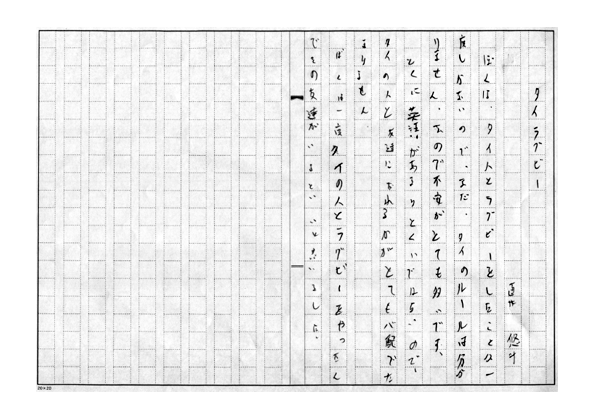 タイラグビー
悠斗
ぼくは、タイ人とラグビーをしたことは一
度しかないので、まだ、タイのルールは分か
りません、なので不安がとても多いです、
とくに英語があまりとくいではないので、
タイの人と友達になれるかがとても心配でた
まりません
ぼくは一度タイの人とラグビーをやったん
でその友達がいるといいと思いました、
20×20